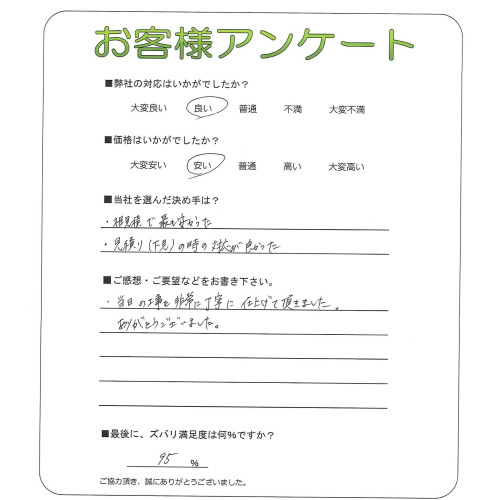 お客様アンケート
■弊社の対応はいかがでしたか？
大変良い 良い 普通 不満 大変不満
■価格はいかがでしたか？
大変安い 安い 普通 高い 大変高い
■当社を選んだ決め手は？
・相見積で最も安かった
・見積り(下見)の時の対応が良かった
■ご感想・ご要望などをお書き下さい。
・当日の工事も非常に丁寧に仕上げて頂きました。
ありがとうございました。
■最後に、ズバリ満足度は何%ですか？
95 %
ご協力頂き、誠にありがとうございました。